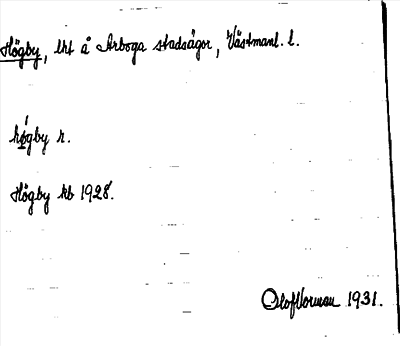 Högby, lht å Arboga stadsägor, Västmanl. l.
hǿ̱gby n.
Högby kb 1928.
Olof Norman 1931.